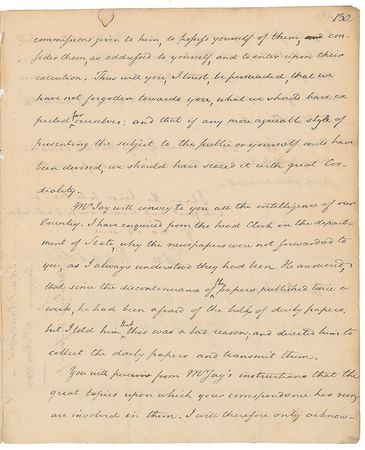 130
commissions given to him, to possess yourself of them, con-
sider them, as addressed to yourself, and to enter upon their
execution. Thus will you, I trust, be persuaded, that we
have not forgotten towards you, what we should have ex
pected for ourselves: and that if any more agreeable style of
presenting the subject to the public or yourself could have
been devised, we should have seized it with great Cor-
diality.
Mr. Jay will convey to you all the intelligence of our
Country. I have enquired from the head Clerk in the depart-
ment of State, why the newspapers were not forwarded to
you, as I always understood they had been. He answered,
that since the discontinuance of the papers, published twice a
week, he had been afraid of the bulk of daily papers;
but I told him that this was a bad reason; and directed him to
collect the daily papers and transmit them.
You will perceive from Mr. Jay's instructions that the
great topics upon which your correspondence has run,
are involved in them. I will therefore only acknow-